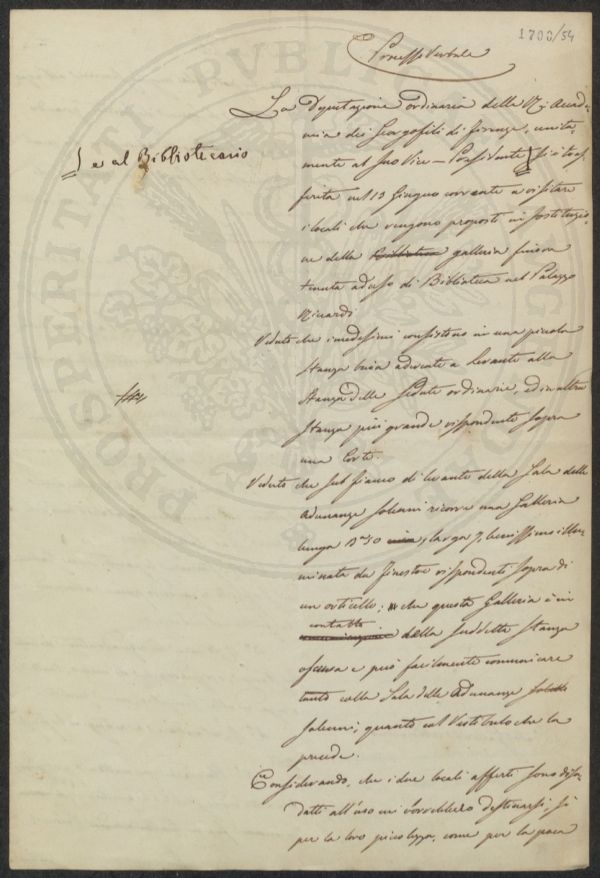 1700/54
Processo Verbale
La Deputazione ordinaria della R. Accade-
mia dei Georgofili di Firenze, unita-
mente al suo Vice-Presidente si è tras-
ferita nel 13 Giugno corrente a visitare
e al Bibliotecario
i locali che vengono proposti in sostituzio-
ne della galleria finora
tenuta ad uso di Biblioteca nel Palazzo
Riccardi
Veduto che i medesimi consistono in una piccola
stanza buia aderente a levante alla
stanza delle Sedute ordinarie, ed in altra
stanza più grande rispondente sopra
una Corte.
Veduto che sul fianco di levante della Sala delle
adunanze solenni ricorre una Galleria
lunga B.a 50 larga 7, benissimo illu-
minata da finestre rispondenti sopra di
un orticello; che questa Galleria è in
contatto
della suddetta stanza
oscura e può facilmente comunicare
tanto colla Sala delle Adunanze
solenni, quanto col Vestibulo che la
precede.
Considerando, che i due locali offerti sono disa-
datti all'uso cui vorrebbero destinarsi, sì
per la loro piccolezza, come per la poca
PROSPERITATI PUBLICAE